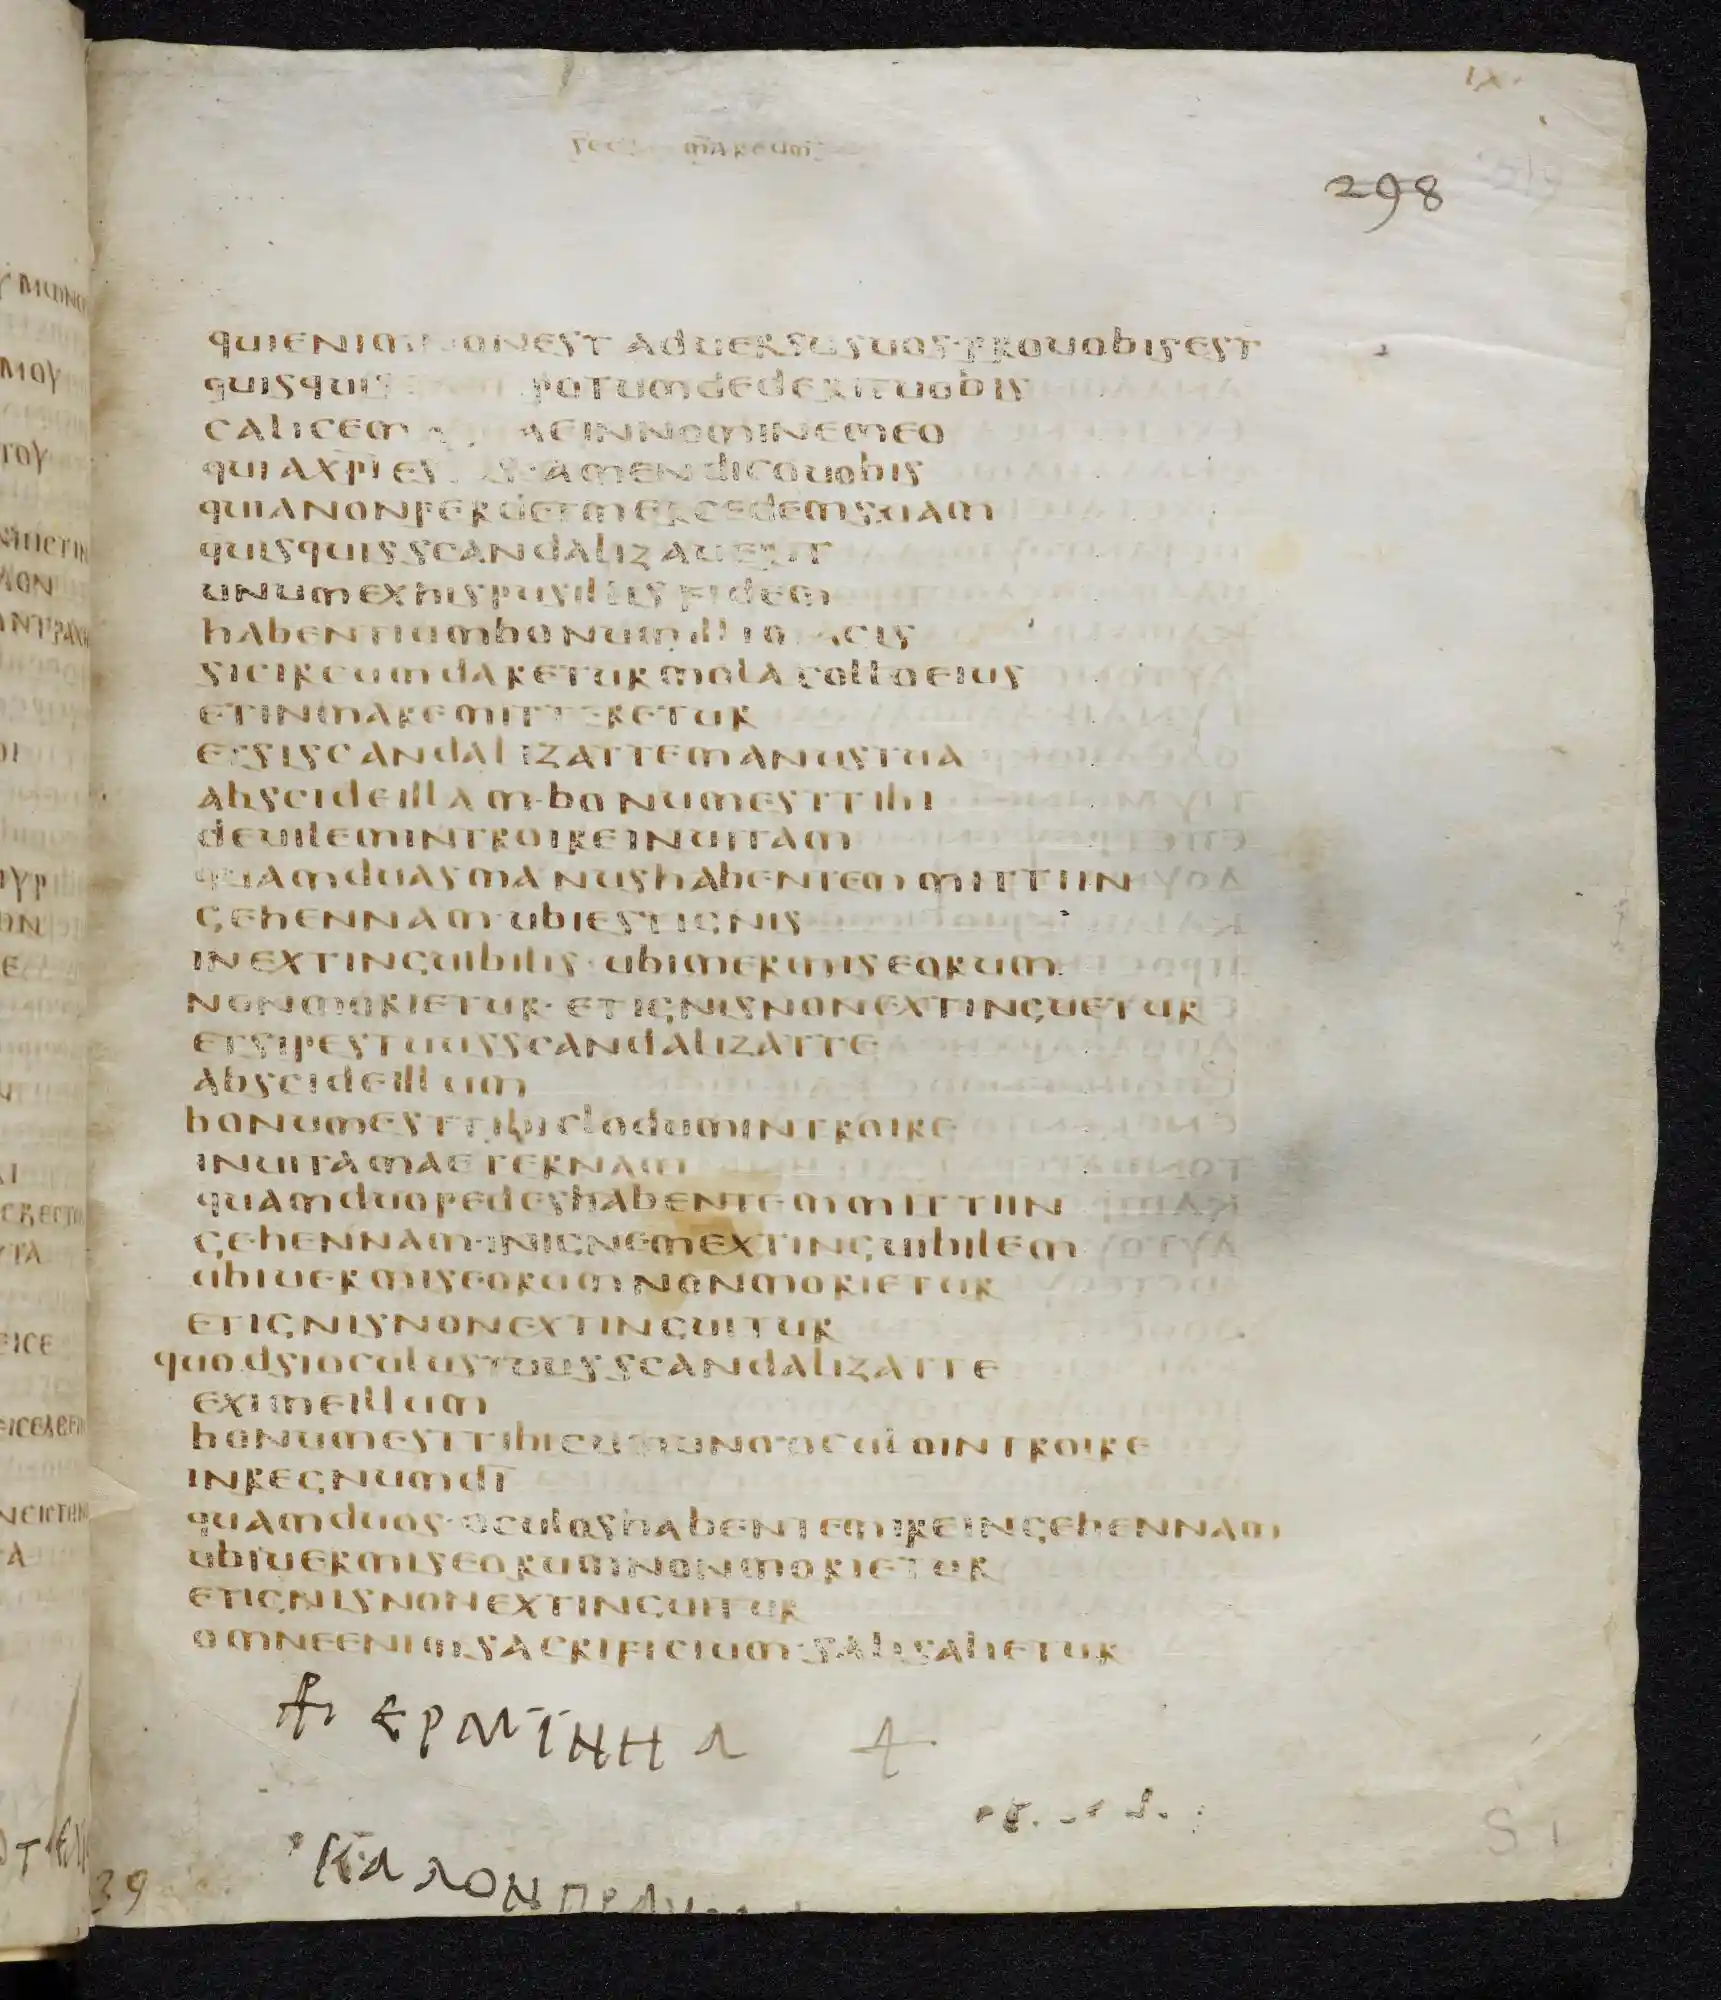 ix.
sec marcum
298
quienimnonest aduersusuos·prouobisest
quisquis potumdederituobis
calicem aquae innomineméo
quiaxpi estis·amendicouobis
quianonperdetmercedemsuam
quisquisscandalizauerit
unumexhispusillisfidem
habentiumbonumilli magis
sicircumdareturmolacolloeius
etinmaremitteretur
etsiscandalizattemanustua
abscideillam·bonumesttibi
deuilemintroireinuitam
quamduasmanushabentemmittiin
gehennam·ubiestignis
inextinguibilis·ubimermiseorum
nonmorietur·etignisnonextinguetur
etsipestuusscandalizatte
abscideillum
bonumesttibiclodumintroire
inuitamaeternam
quamduopedeshabentemmittiin
gehennam·inignemextinguibilem
ubiuermiseorumnonmorietur
etignisnonextinguitur
quodsioculustuusscandalizatte
eximeillum
bonumesttibicumunooculointroire
inregnumdi̅
quamduos·oculoshabentemireingehennam
ubiuermiseorumnonmorietur
etignisnonextinguitur
omneenimsacrificium·salisabetur
ΕΡΜΊΝΗΑ
ΚΑΛΟΝ
39